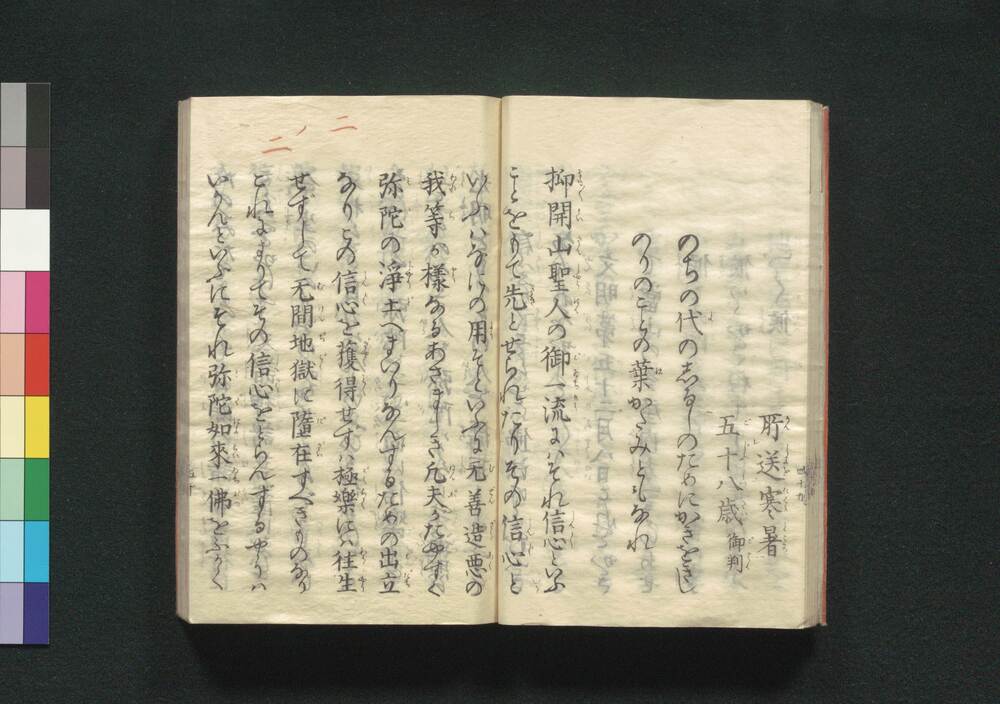 所送寒暑
五十八歳 御判
のちの代のしるしのためにかきをきし
のりのことの葉かたみともなれ
抑開山聖人の御一流にハそれ信心といふ
ことをもて先とせられたりその信心と
いふハなにの用そといふに无善造悪の
我等か様なるあさましき凡夫かたやすく
弥陀の淨土へまいりなんするための出立
なりこの信心を獲得せすハ極樂にハ往生
せずして无間地獄に墮在すべきものなり
これによりてその信心をとらんするやうハ
いかんといふにそれ弥陀如來一佛をふかく
二ノ二